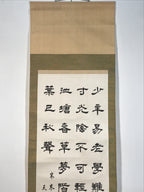 少年易老學難
寸光陰不可輕
池塘春草夢階
葉已秋聲